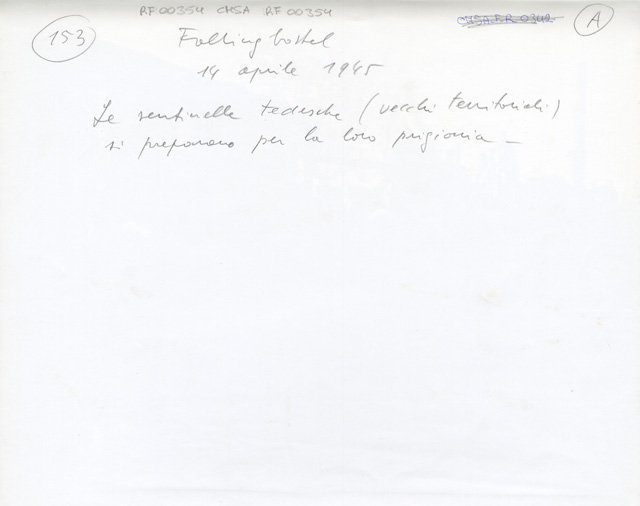 RF 00354 CHSA RF 00354
CHSA FR 0342
A
153
Fallingbostel
14 aprile 1945
Le sentinelle tedesche (vecchi territoriali)
si preparano per la loro prigionia –